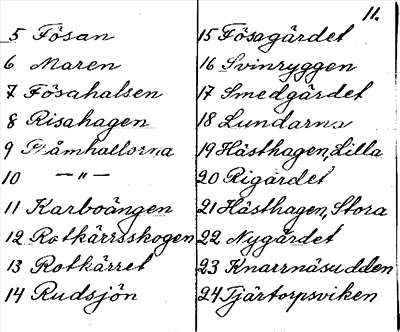 11.
5 Fösan
6 Maren
7 Fösahalsen
8 Risahagen
9 Bråmhallorna
10 —"—
11 Karboängen
12 Rotkärrsskogen
13 Rotkärret
14 Rudsjön
15 Fösagärdet
16 Svinryggen
17 Smedgärdet
18 Lundarna
19 Hästhagen, Lilla
20 Rigärdet
21 Hästhagen, Stora
22 Nygärdet
23 Knarrnäsudden
24 Tjärtorpsviken